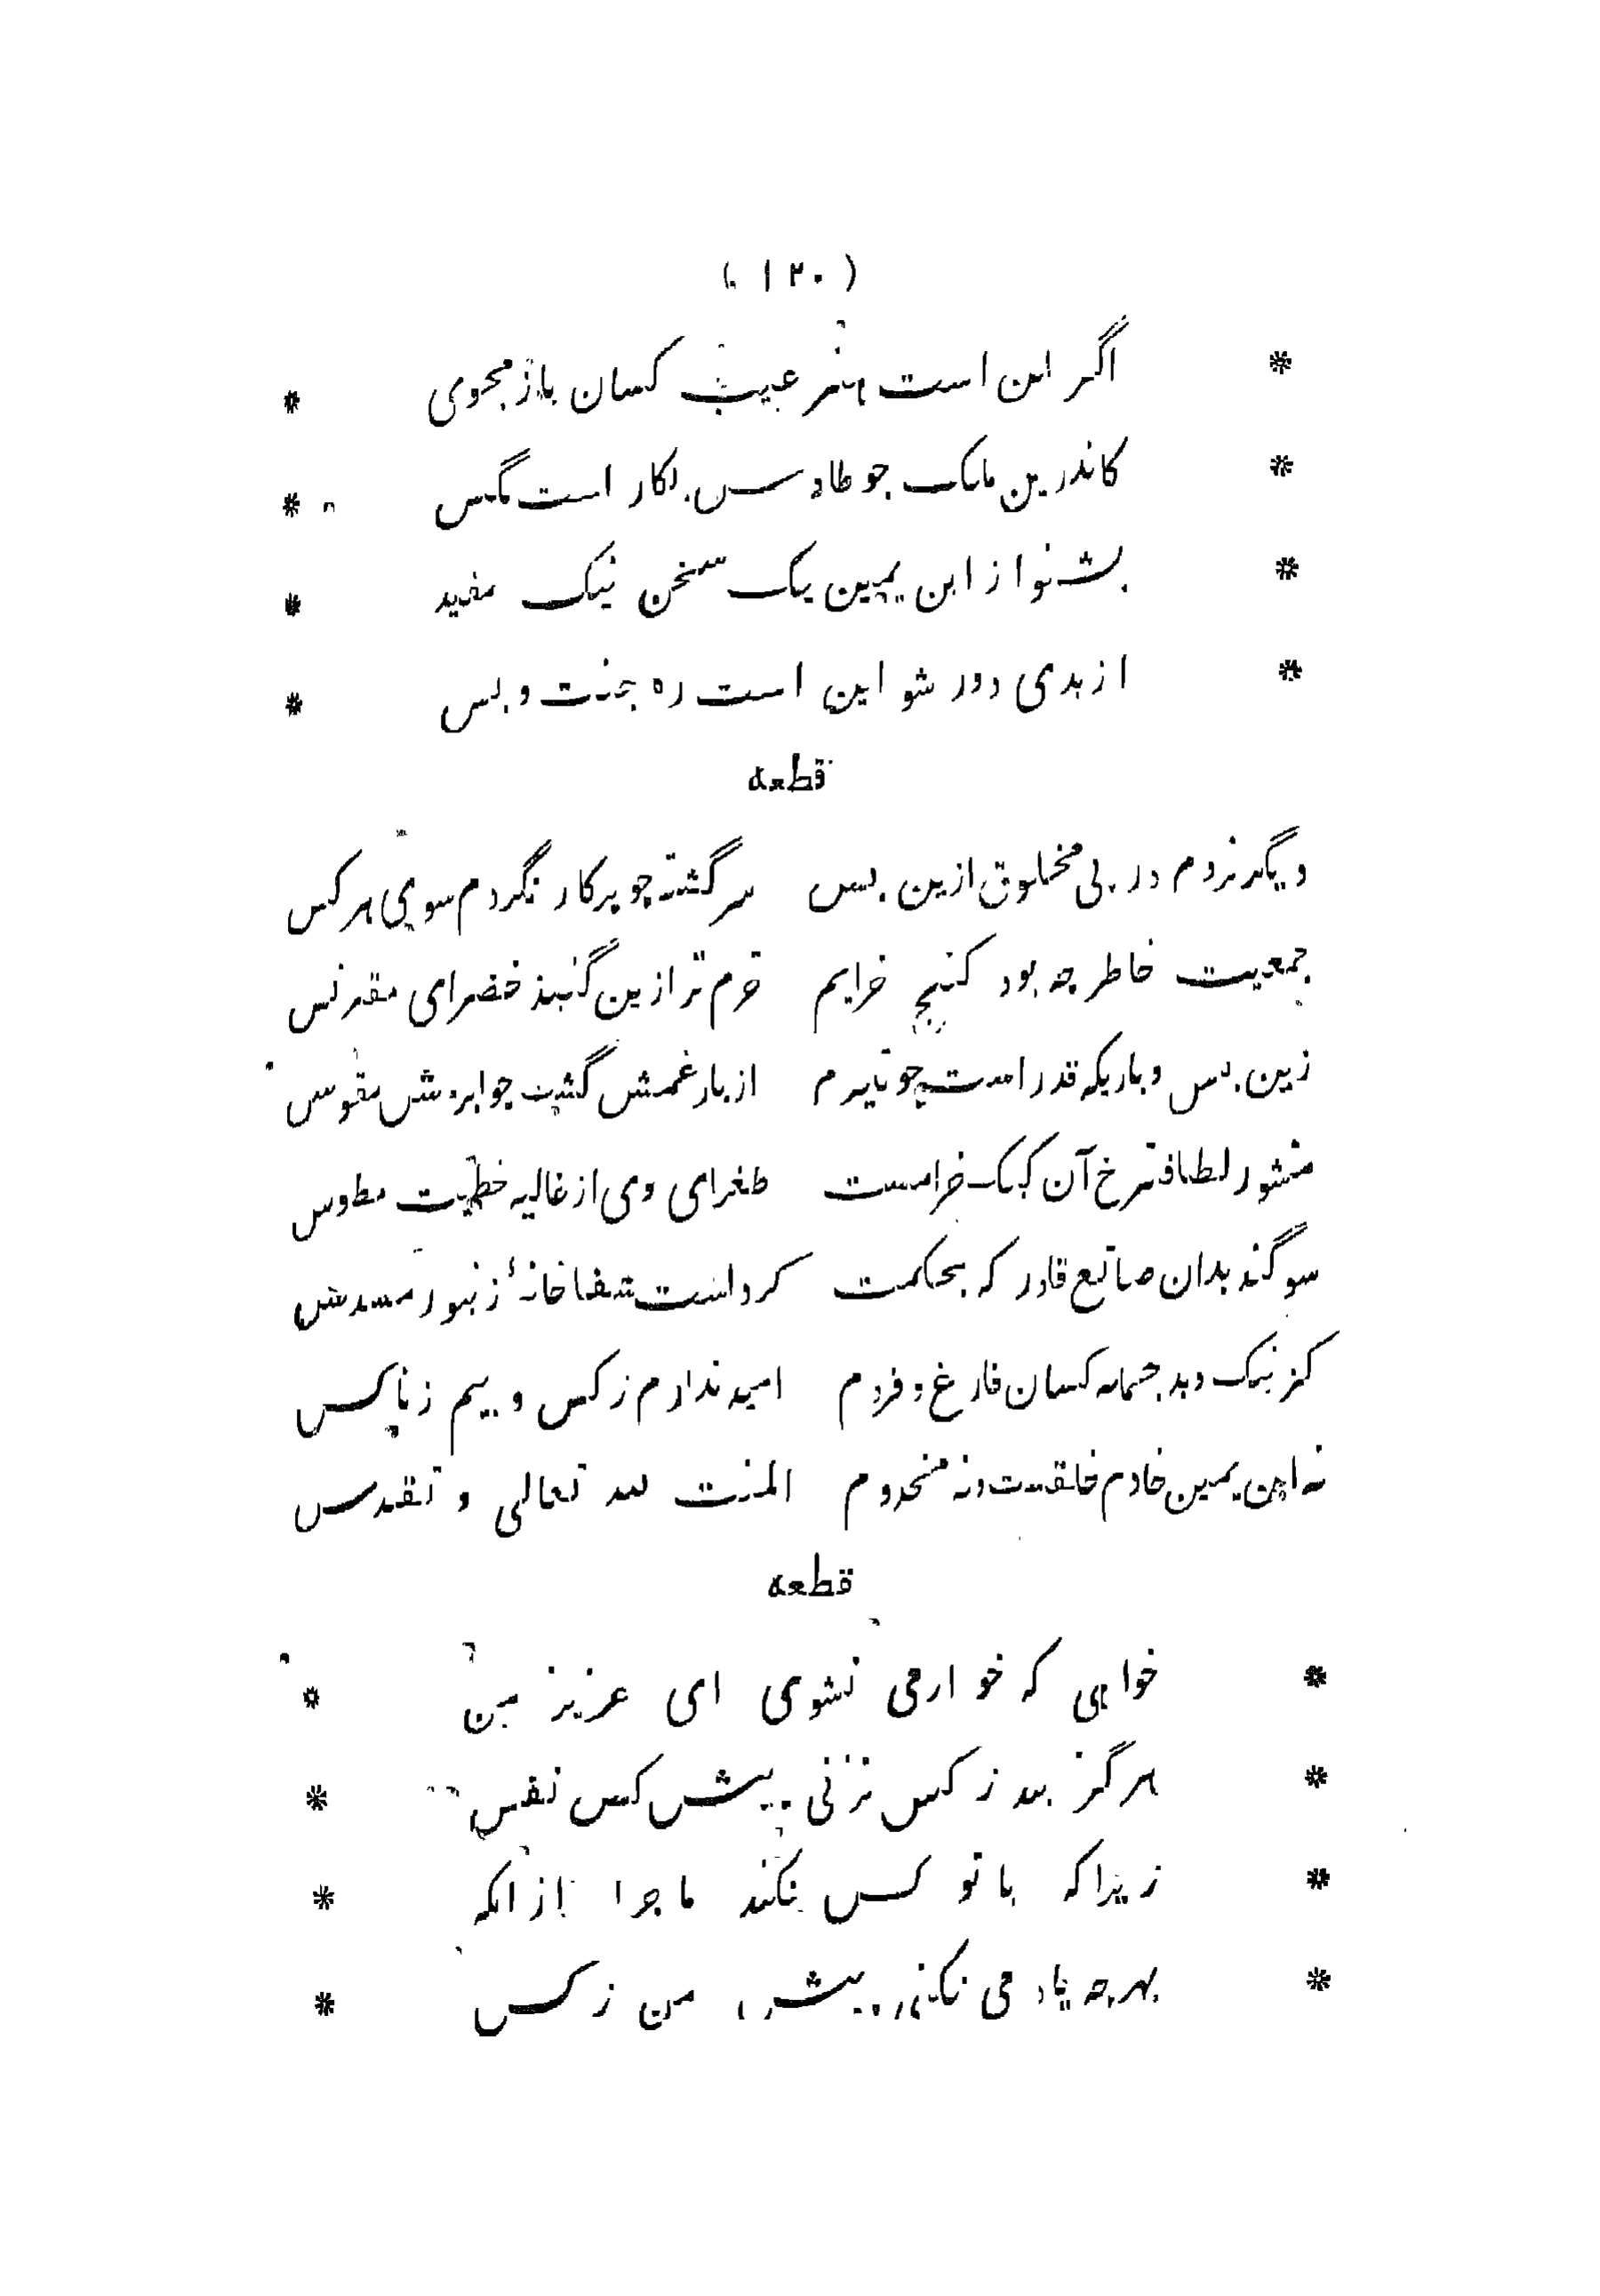 ( ۱۲۰ )
* اگر این است هنر عیب کسان باز مجوی *
* کاندرین ملک چو طاوس بکار است مگس *
* بشنو از ابن یمین یک سخن نیک مفید *
* از بدی دور شو این است ره جنت و بس *
قطعه
دیگر نروم در پی مخلوق ازین پس سرگشته چو پرکار نگردم سوی هر کس
جمعیت خاطر چه بود کنج خرابم خرم تر ازین گنبذ خضرای مقرنس
زین پس و باریکه قدر است چو تیرم از بار غمش گشت چو ابروش مقوس
منشور لطافت رخ آن کبک خرامست طغرای وی از غالیه خطیست مطوس
سوگند بدان صانع قادر که بحکمت کرداست شفا خانهٔ زنبور مسدس
کز نیک و بد جمله کسان فارغ و فردم امید ندارم ز کس و بیم ز ناکس
نه ابن یمین خادم خلقست و نه مخدوم المنت لله تعالی و تقدس
قطعه
* خواهی که خوار می نشوی ای عزیز من *
* هرگز بد ز کس نزنی پیش کس نفس *
* زیرا که با تو کس نکند ماجرا ازانکه *
* بهر چه یاد می نکنی پیش من ز کس *